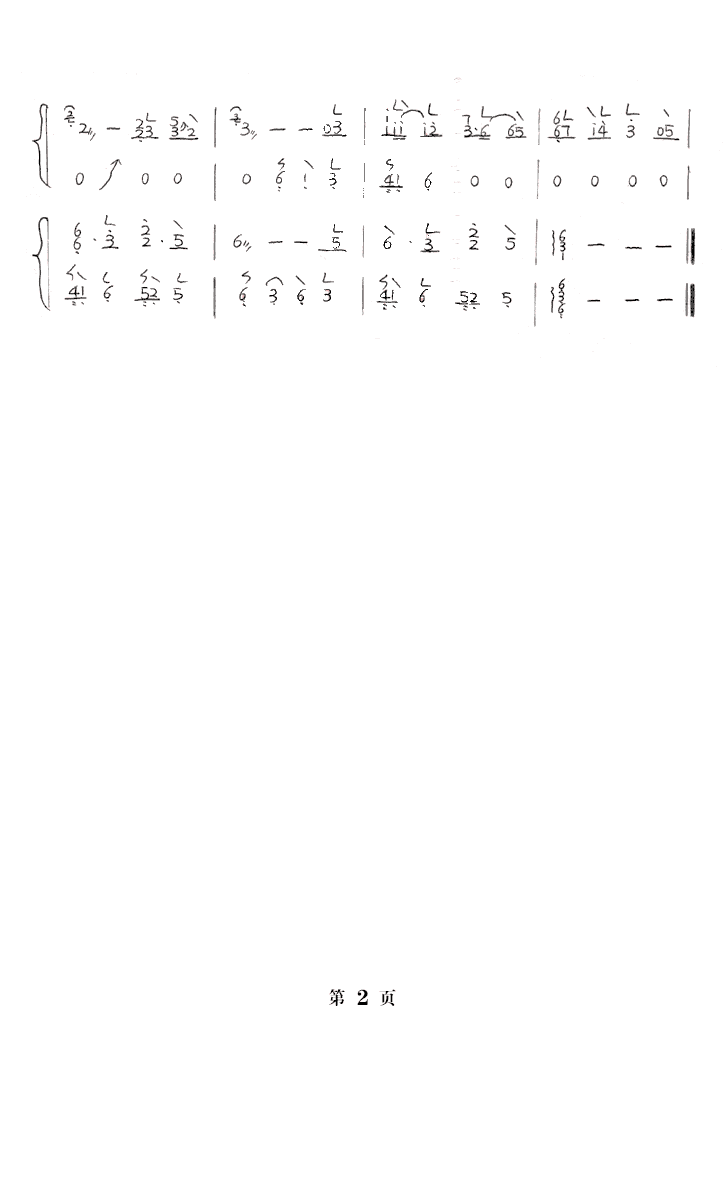 2 — 33 532 | 3 — — 03 | 111 12 3·6 65 | 67 14 3 05 |
0 0 0 | 0 6 1 3 | 41 6 0 0 | 0 0 0 0 |
6 6 · 3 2 2 · 5 | 6 — — 5 | 6 · 3 2 2 5 | 6 3 1 — — —
41 6 52 5 | 6 3 6 3 | 41 6 52 5 | 6 3 6 — — —
第 2 页